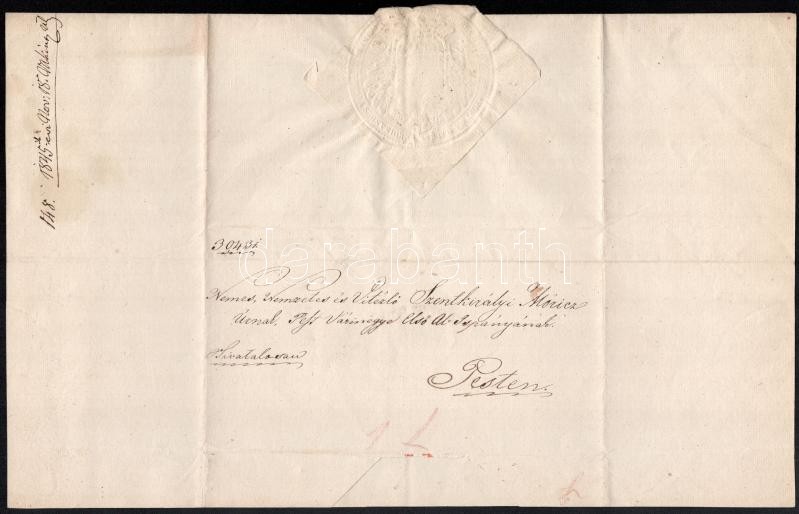 148. 1845ik évi Nov: 18.
30431
Nemes, Nemzetes és Vitézló Szentkirályi Móricz
Úrnak, Pest Vármegye Első Al-Ispányának.
Hivatalosan
Pesten.
darabanth